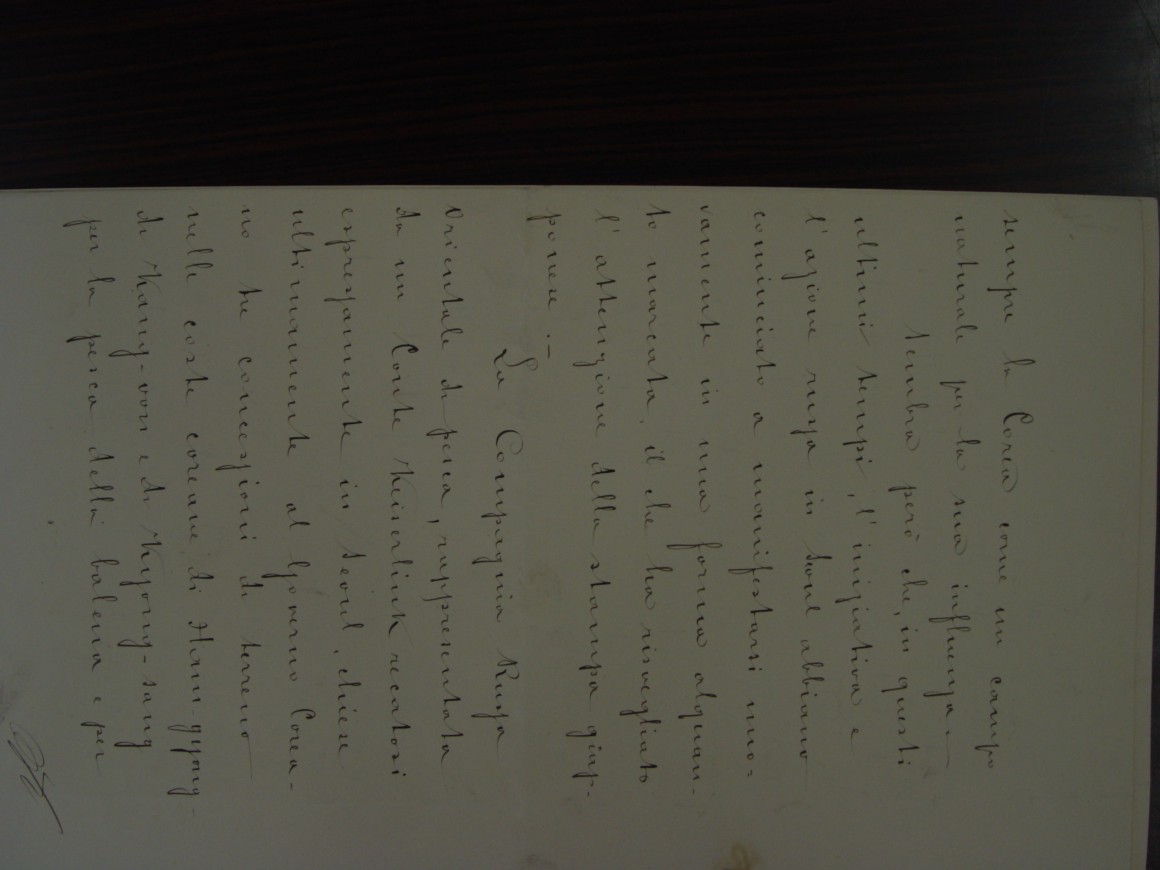 sempre la Corea come un campo
naturale per la sua influenza.—
Sembra però che, in questi
ultimi tempi, l'iniziativa e
l'azione russa in Seoul abbiano
cominciato a manifestarsi nuo=
vamente in una forma alquan-
to marcata, il che ha risvegliato
l'attenzione della stampa giap-
ponese.—
La Compagnia Russa
Orientale di pesca, rappresentata
da un Conte Keiserlink recatosi
espressamente in Seoul, chiese
ultimamente al Governo Corea-
no tre concessioni di terreno
nelle coste coreane di Ham gyong-
di Kang-won e di Kyong-sang
per la pesca della balena e per